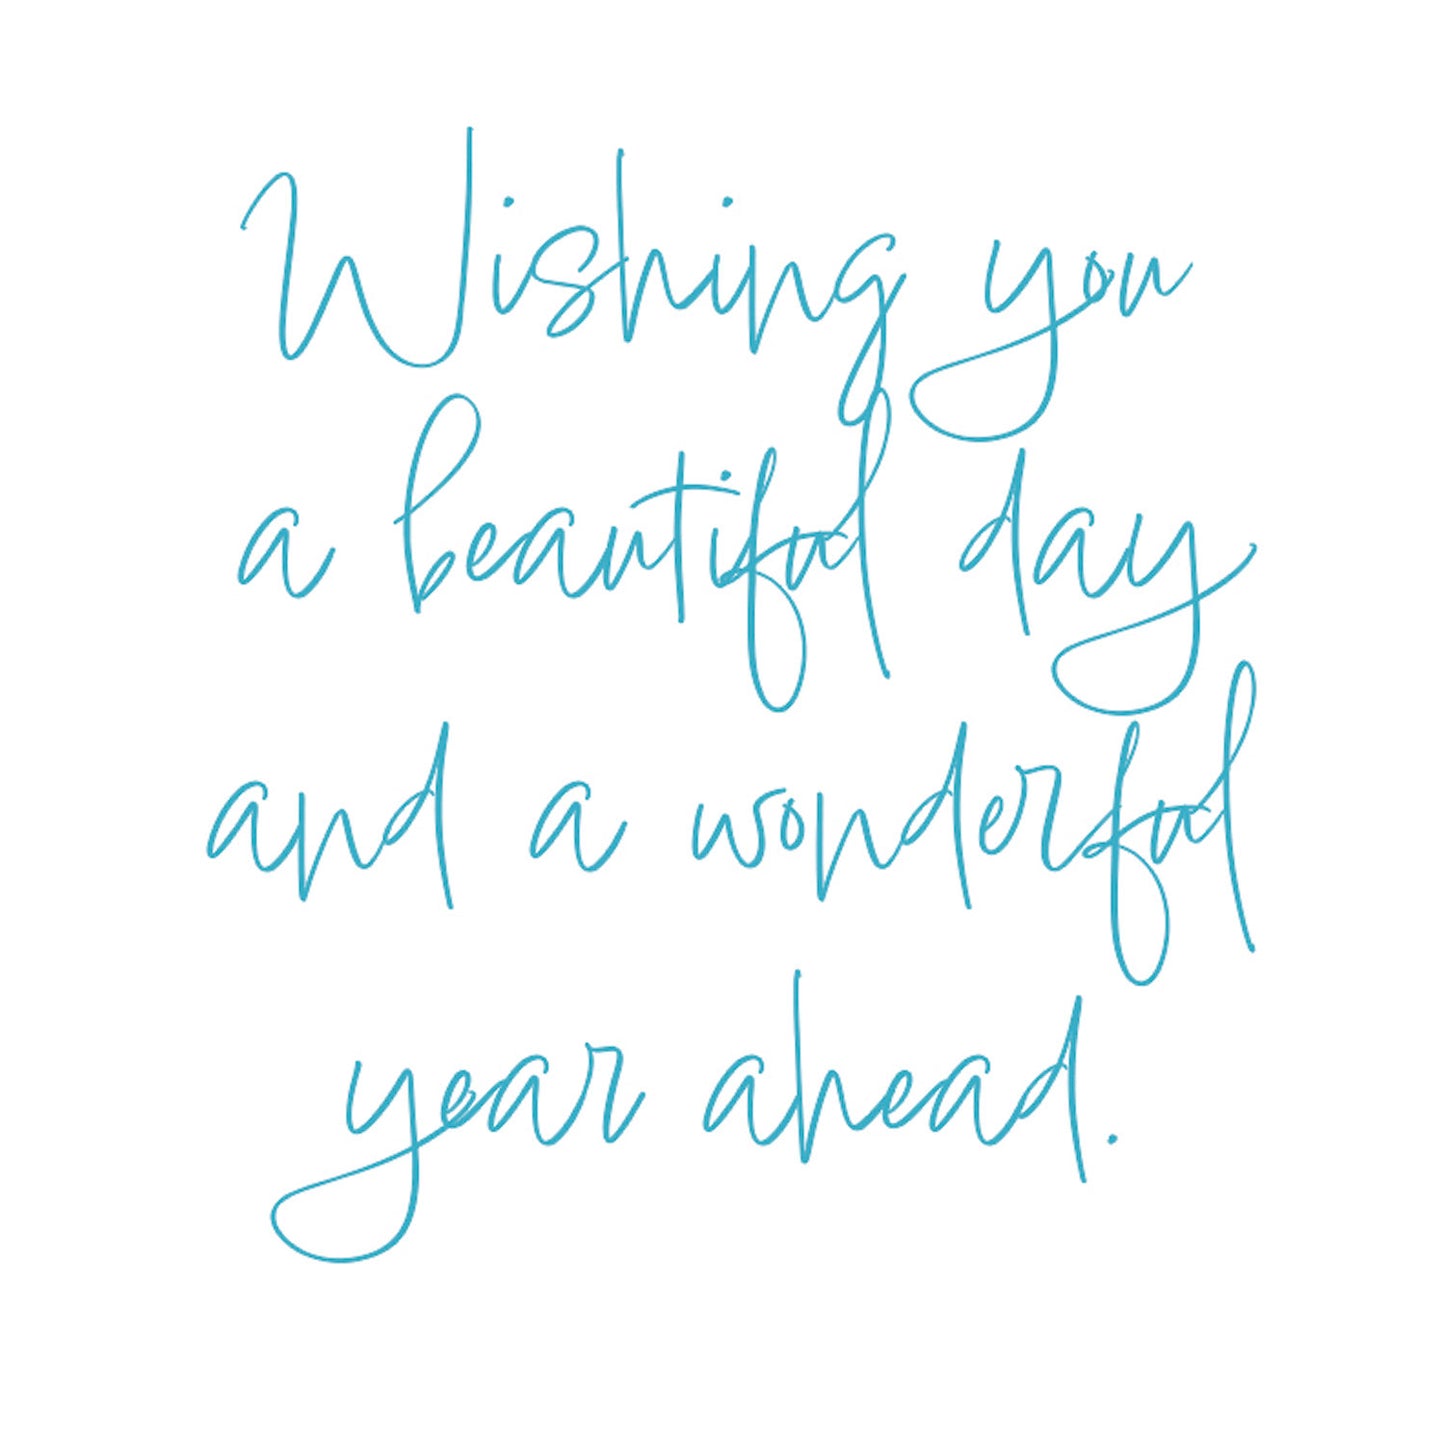 Wishing you
a beautiful day
and a wonderful
year ahead.